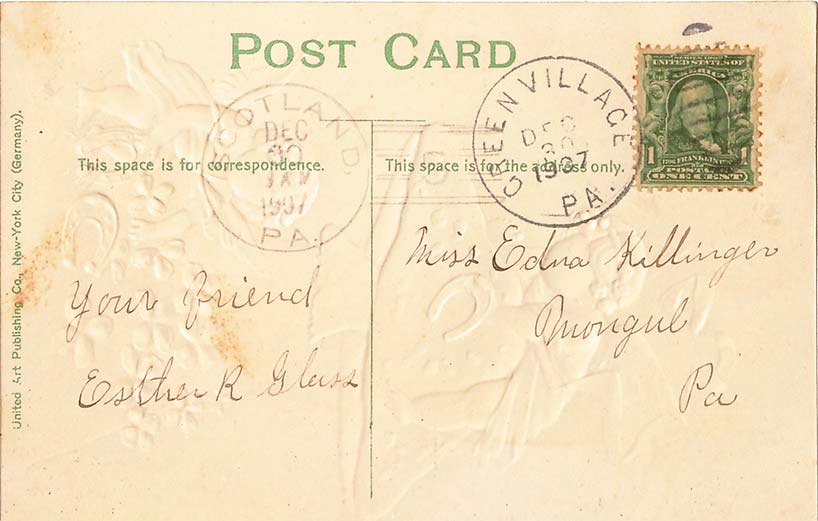 POST CARD
SCOTLAND,
DEC
30
1907
PA.
GREENVILLAGE
DEC
30
1907
PA.
SERIES 1902
UNITED STATES OF
AMERICA
1 FRANKLIN 1
POSTAGE
ONE CENT
This space is for correspondence.
This space is for the address only.
United Art Publishing Co., New-York City (Germany).
Your friend
Esther R Glass
Miss Edna Killinger
Mongul
Pa